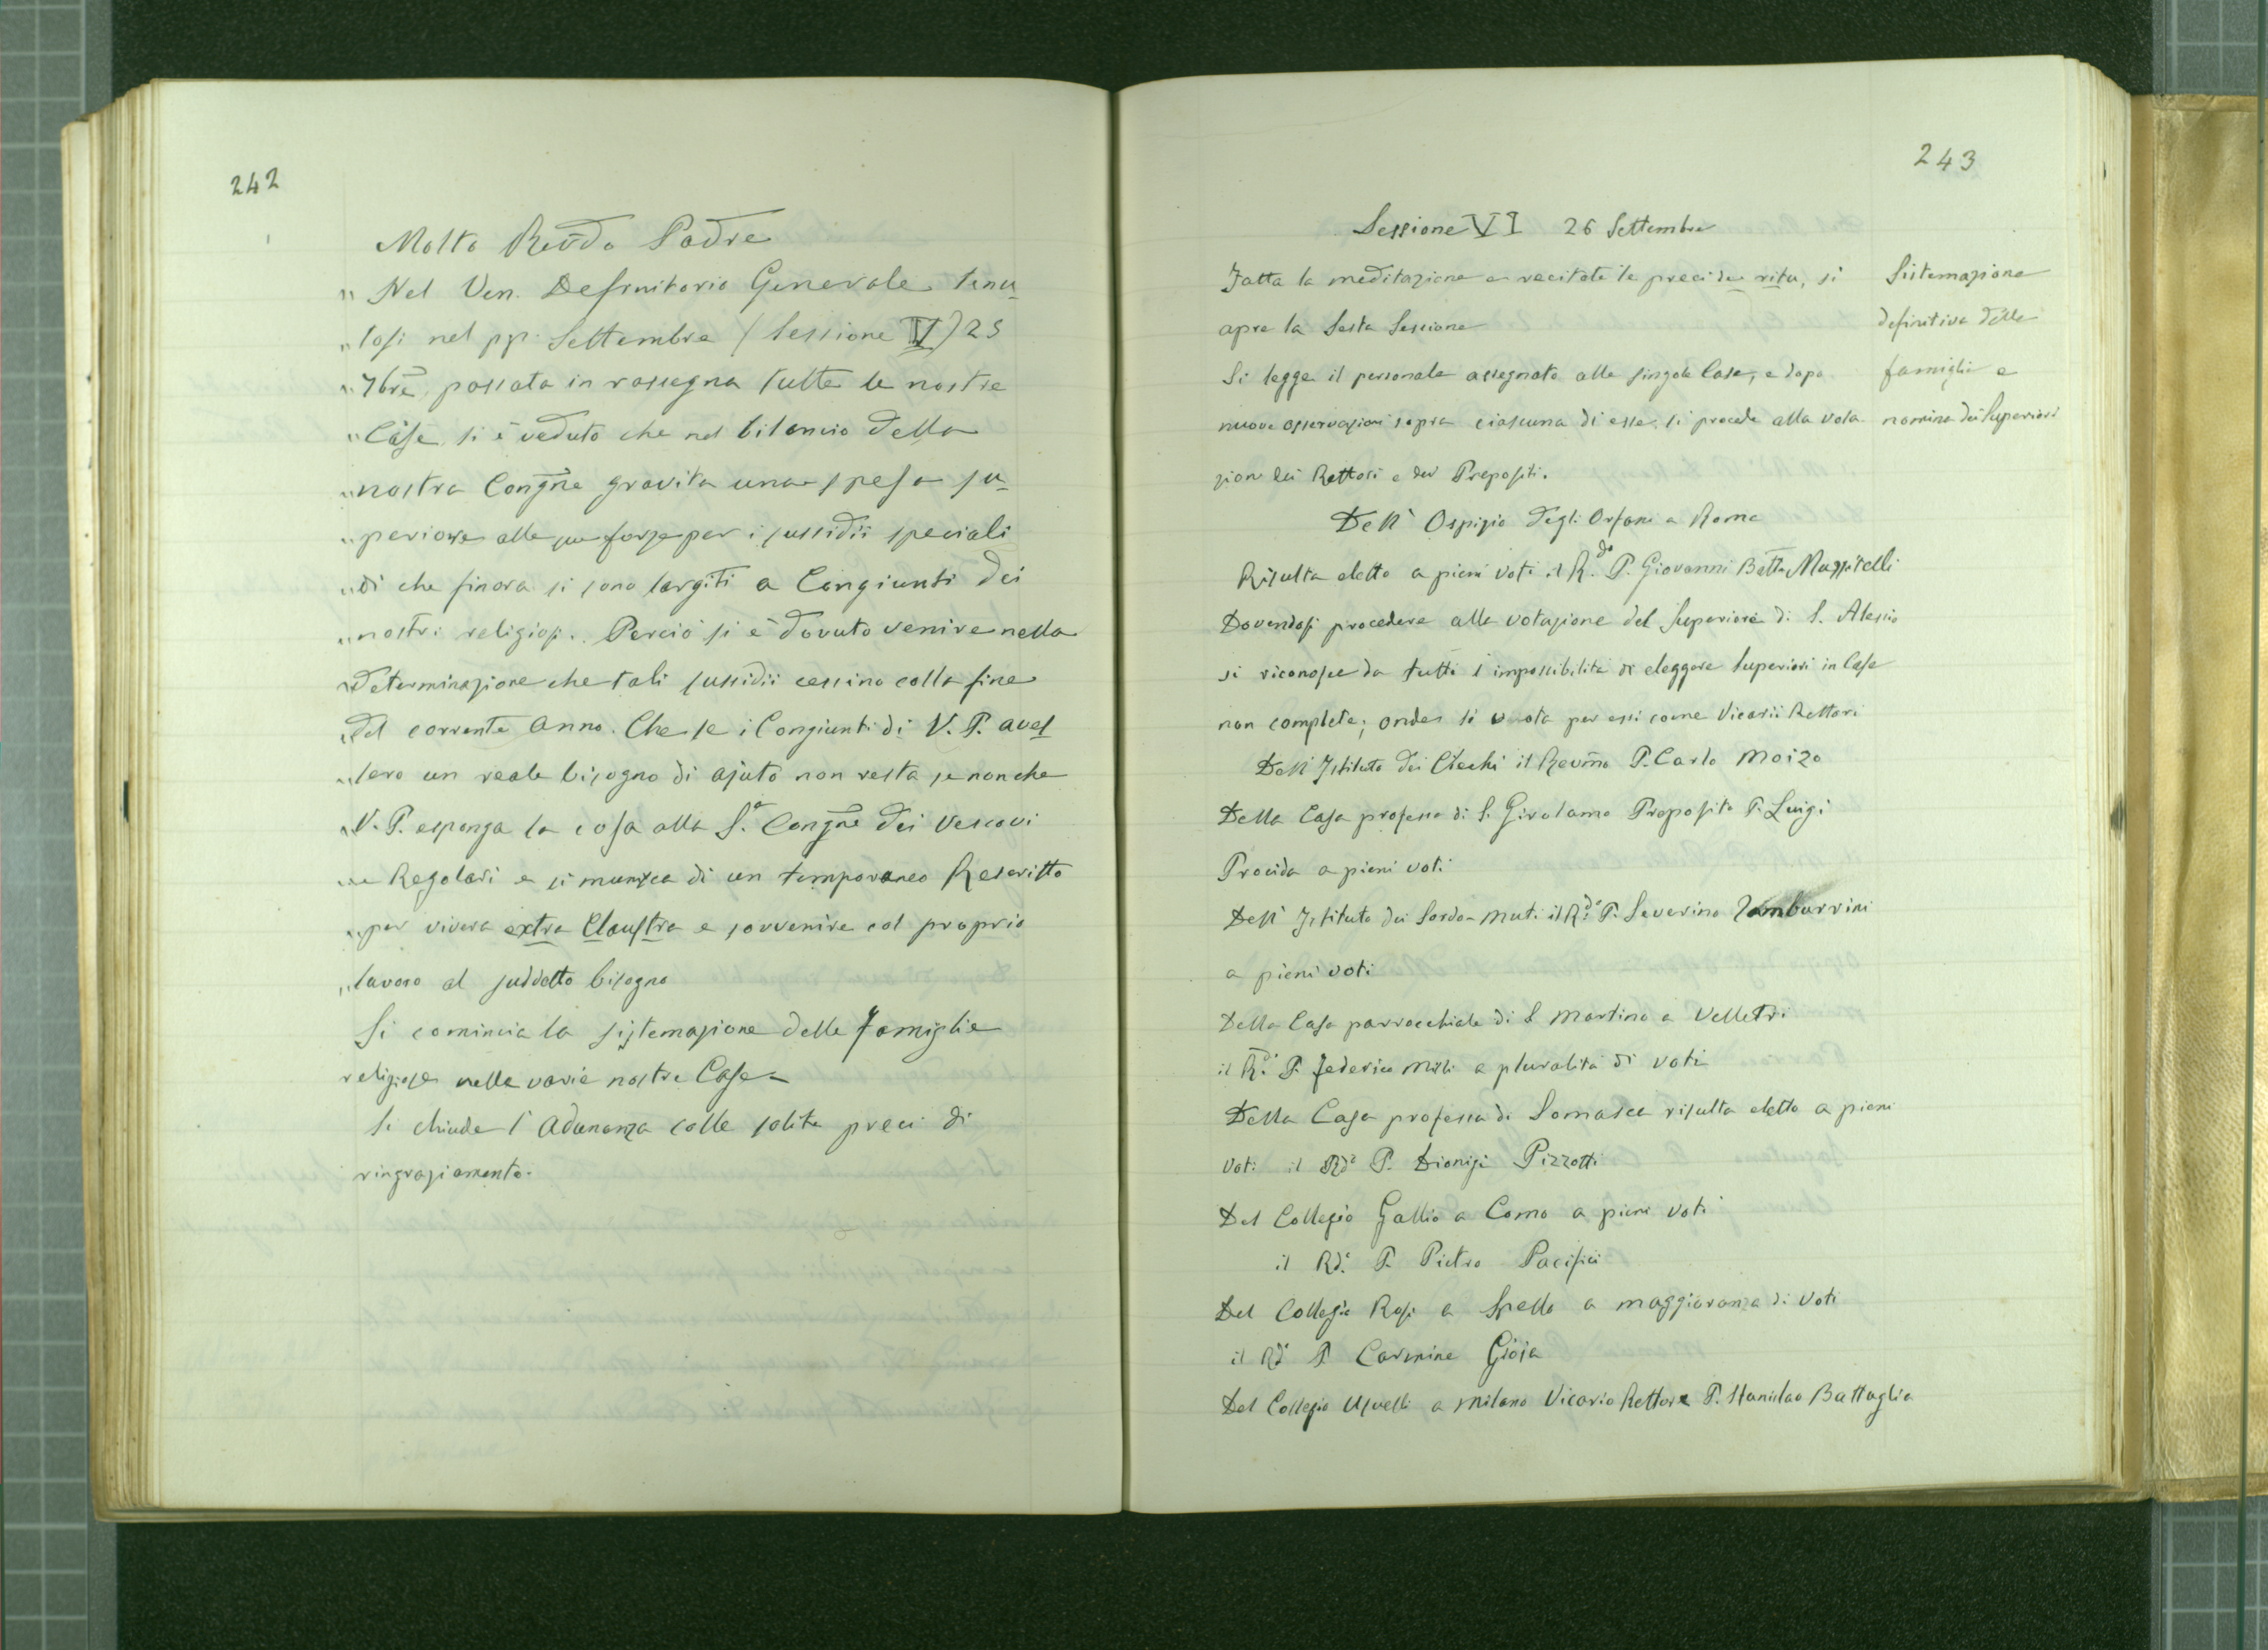 242
Molto Revdo Padre
" Nel Ven. Definitorio Generale tenu-
" tosi nel pp. Settembre (Sessione IV) 25
" 7bre, passata in rassegna tutte le nostre
" Case, si è veduto che nel bilancio della
" nostra Congne gravita una spesa su-
" periore alle sue forze per i sussidii speciali
" di che finora si sono largiti a Congiunti dei
" nostri religiosi. Perciò si è dovuto venire nella
" determinazione che tali sussidii cessino colla fine
" del corrente anno. Che se i Congiunti di V. P. aves
" sero un reale bisogno di ajuto non resta se non che
" V. P. esponga la cosa alla S.a Congne dei Vescovi
" e Regolari e si munisca di un temporaneo Rescritto
" per vivere extra Claustra e sovvenire col proprio
" lavoro al suddetto bisogno
Si comincia la sistemazione delle famiglie
religiose nelle varie nostre Case -
Si chiude l'adunanza colle solite preci di
ringraziamento.
243
Sessione VI 26 Settembre
Fatta la meditazione e recitate le preci de ritu, si
apre la Sesta Sessione
Si legge il personale assegnato alle singole Case, e dopo
nuove osservazioni sopra ciascuna di esse, si procede alla vota
zion dei Rettori e dei Prepositi.
Sistemazione
definitiva delle
famiglie e
nomina dei Superiori
Dell' Ospizio degli Orfani a Roma
Risulta eletto a pieni voti il R.do P. Giovanni Batta Mazzitelli
Dovendosi procedere alla votazione del Superiore di S. Alessio
si riconosce da tutti l'impossibilità di eleggere Superiori in Case
non complete; onde si vota per essi come Vicarii Rettori
Dell' Istituto dei Ciechi il Revmo P. Carlo Moizo
Della Casa professa di S. Girolamo Preposito P. Luigi
Procida a pieni voti
Dell' Istituto dei Sordo-muti il R.do P. Severino Tamburrini
a pieni voti
Della Casa parrocchiale di S. Martino a Velletri
il R.do P. Federico a pluralità di voti
Della Casa professa di Somasca risulta eletto a pieni
voti il Rdo P. Dionigi Pizzotti
Del Collegio Gallio a Como a pieni voti
il Rdo P. Pietro Pacifici
Del Collegio Rosi a Spello a maggioranza di voti
il Rdo P. Carmine Gioia
Del Collegio Usuelli a Milano Vicario Rettore P. Stanislao Battaglia